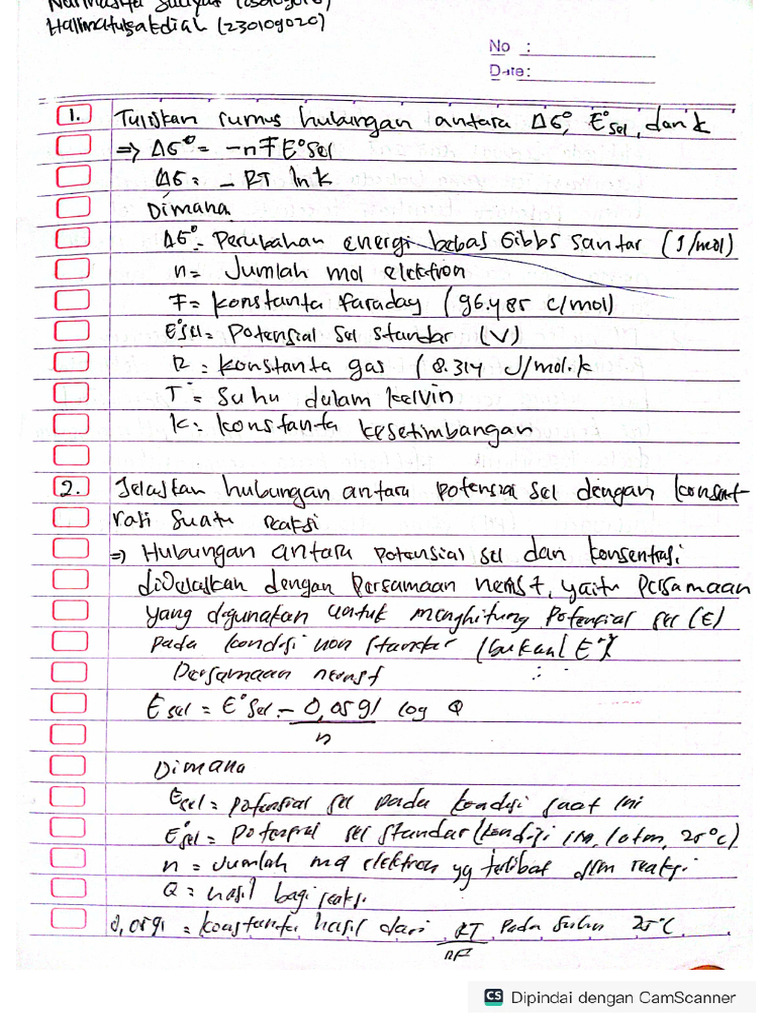 Hallimatulsakdiah (230109020)
No :
Date:
1. Tuliskan rumus hubungan antara ΔG°, E°sel, dan k
⇒ ΔG° = -nFE°sel
ΔG = - RT ln k
Dimana
ΔG° = Perubahan energi bebas Gibbs santar (J/mol)
n = Jumlah mol elektron
F = konstanta faraday (96.485 c/mol)
E°sel = Potensial sel standar (V)
R = konstanta gas (8.314 J/mol.k
T = Suhu dalam kelvin
K = konstanta kesetimbangan
2. Jelaskan hubungan antara potensial sel dengan konsent-
rasi suatu reaksi
⇒ Hubungan antara potensial sel dan konsentrasi
dijelaskan dengan Persamaan nernst, yaitu persamaan
yang digunakan untuk menghitung Potensial sel (E)
pada kondisi non standar (bukan E°)
Persamaan nernst :
Esel = E°sel - 0,0591 log Q
n
Dimana
Esel = potensial sel pada kondisi saat ini
E°sel = potensial sel standar (kondisi 1M, 1 atm, 25°C)
n = Jumlah mol elektron yg terlibat dlm reaksi
Q = hasil bagi reaksi
0,0591 = konstanta hasil dari RT pada suhu 25°C
nF
CS Dipindai dengan CamScanner